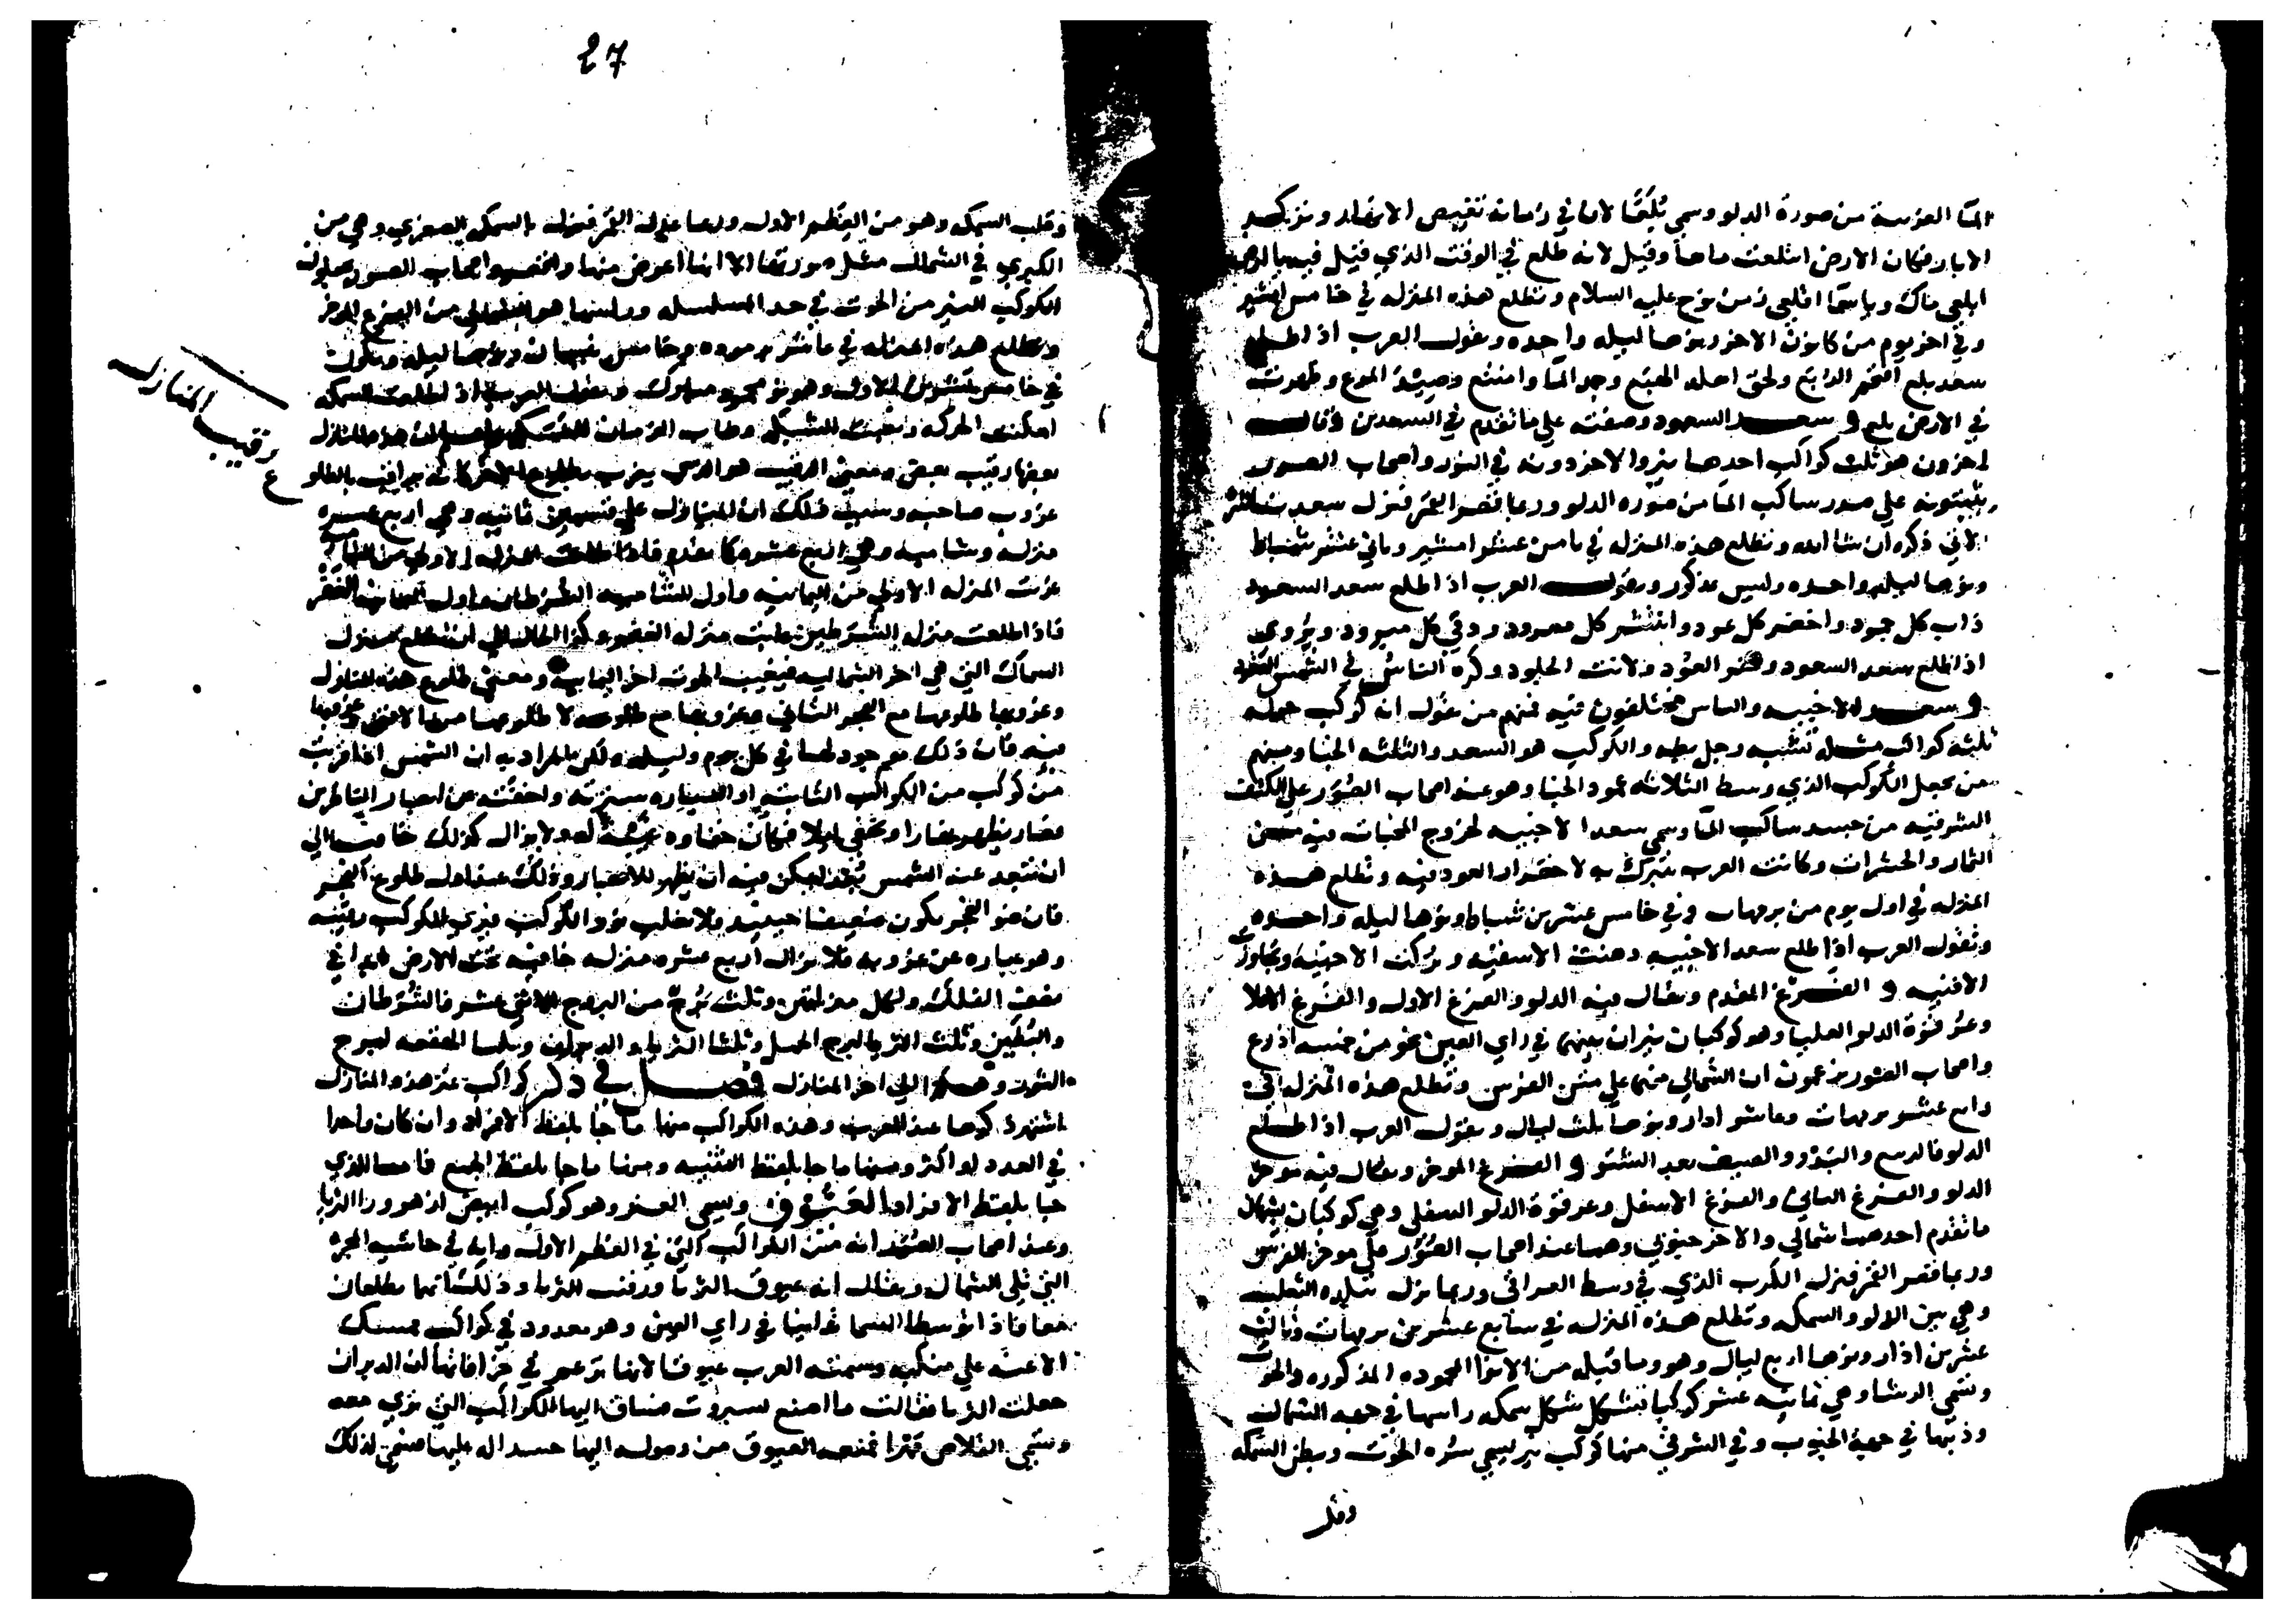 الما الغربية من صورة الدلو وسمي بُلَعًا لان في زمانه تنقيص الانهار و
الابار فكان الارض ابتلعت ماها وقيل لانه طلع في الوقت الذي قيل فيه يا ارض
ابلعي ماك وياسما اقلعي زمن نوح عليه السلام وتطلع هذه المنزله في خامس امشير
وفي اخر يوم من كانون الاخر ونوها ليله واحده وتقول العرب اذا طلع
سعد بلع اقتحم الربع ولحق اهله الهبع وصيد المرع وظهرت
في الارض بلع و سعد السعود وصفته على ما تقدم في السعدين وقال
اخرون هو ثلث كواكب احدها نير والاخر دونه في النور واصحاب الصور
يثبتونه على صدر ساكب الما من صوره الدلو وربما قصر القمر فنزل سعد ناشره
الاتي ذكره ان شا الله وتطلع هذه المنزله في ثامن عشر امشير وثاني عشر شباط
ونوها ليله واحده وليس مذكور وتقول العرب اذا طلع سعد السعود
ذاب كل جمود واخضر كل عود وانتشر كل مصرود ودفي كل مبرود ويروى
اذا طلع سعد السعود ونضر العود ولانت الجلود وكره الناس في الشمس القعود
و سعد الاخبيه والناس مختلفون فيه فمنهم من يقول انه كوكب حوله
ثلثه كواكب مثلثه تشبه رجل بطه والكوكب هو السعد والثلثه الخبا ومنهم
من يجعل الكوكب الذي وسط الثلاثه عمود الخبا وهو عند اصحاب الصور على الكتف
الشرقيه من جسد ساكب الما وسمي سعد الاخبيه لخروج المخبات فيه من
الثمار والحشرات وكانت العرب تتبرك به لاخضرار العود فيه وتطلع هذه
المنزله في اول يوم من برمهات وفي خامس عشرين شباط ونوها ليله واحده
وتقول العرب اذا طلع سعد الاخبيه دهنت الاسقيه ونزلت الاحنيه وتجاورت
الافنيه و الفرغ المقدم ويقال فيه الدلو والفرغ الاول والفرغ الاعلا
وعرقوة الدلو العليا وهو كوكبان نيران بينهما في راي العين نحو من خمسه اذرع
واصحاب الصور يزعمون ان الشمالي منهما على متن الفرس وتطلع هذه المنزله في
رابع عشر برمهات وعاشر ادار ونوها ثلث ليال وتقول العرب اذا طلع
الدلو فالربيع والبدو والصيف بعد الشتو و الفرغ الموخر ويقال فيه موخر
الدلو والفرغ الثاني والفرغ الاسفل وعرقوة الدلو السفلى وهي كوكبان
ما تقدم احدهما شمالي والاخر جنوبي وهما عند اصحاب الصور على موخر الفرس
وربما قصر القمر فنزل الكرب الذي في وسط العراقي وربما نزل بلده الثعلب
وهي بين الدلو والسمكه وتطلع هذه المنزله في سابع عشرين برمهات وثالث
عشرين اذار ونوها اربع ليال وهو وما قبله من الانوا المحموده المذكوره والحوت
وتسمى الرشا وهي ثمانيه عشر كوكبا تشكل شكل سمكه راسها في جهه الشمال
وذنبها في جهة الجنوب وفي الشرقي منها كوكب نير يسمى سره الحوت وبطن السمكه
وقلب
27
وقلب السمكه وهو من العظم الاول وربما عدل القمر فنزل بالسمكه الصغرى وهي من
الكبرى في الشمال مثل صورتها الا انها اعرض منها واقصر واصحاب الصور يجعلون
الكوكب النير من الحوت في حد المسلسله وراسها هو الشمالي من الفرغ الموخر
وتطلع هذه المنزله في عاشر برموده وخامس نيسان ونوها ليله ويكون
في خامس تشرين الاول وهو نو محمود وتقول العرب اذا طلعت السمكه
امكنت الحركه ونصبت الشبكه وطاب الزمان للنسكه واعلم ان هذه المنازل
بعضها رقيب بعض ومعنى الرقيب هو الذي يغرب بطلوع الاخر كانه يراقب بالطلوع
غروب صاحبه وسبب ذلك ان المنازل على قسمين يمانيه وهي اربع عشره
منزله وشاميه وهي اربع عشره كما تقدم فاذا طلعت المنزله الاولى من الشاميه
غربت المنزله الاولى من اليمانيه واول الشاميه الشرطان واول اليمانيه الغفر
فاذا طلعت منزله الشرطين غابت منزله الغفر وكذا الحال الى ان تطلع منزله
السماك التي هي اخر الشماليه فيغيب الحوت اخر اليمانيه ومعنى طلوع هذه المنازل
وغروبها طلوعها مع الفجر الثاني وغروبها مع طلوعه لا طلوعها من الافق وغروبها
فيه فان ذلك موجود لها في كل يوم وليله ولكن المراد به ان الشمس اذا قربت
من كوكب من الكواكب الثابته او السياره سترته واخفته عن ابصار الناظرين
فصار يظهر نهارا ويخفى ليلا فكان خفاوه غيبة له ولا يزال كذلك خافيا الى
ان تبعد عنه الشمس بعدا يمكن فيه ان يظهر للابصار وذلك عند اول طلوع الفجر
فان ضو الفجر يكون ضعيفا حينيذ فلا يغلب نور الكوكب فيرى الكوكب وغيبته
وهو عباره عن غروبه فلا تزال اربع عشره منزله خافيه تحت الارض ابدا في
نصف الفلك ولكل منزلتين وثلث برج من البروج الاثني عشر فالشرطان
والبطين وثلث الثريا لبرج الحمل وثلثا الثريا والدبران وثلثا الهقعه لبرج
الثور وهكذا الى اخر المنازل فصل في ذكر كواكب غير هذه المنازل
اشتهر ذكرها عند العرب وهذه الكواكب منها ما جا بلفظ الافراد وان كان واحدا
في العدد او اكثر ومنها ما جا بلفظ التثنيه ومنها ما جا بلفظ الجمع فاما الذي
جا بلفظ الافراد العَيُّوق ويسمى العنز وهو كوكب ابيض ازهر ورا الثريا
وعند اصحاب الصور انه من الكواكب التي في العظم الاول وانه في حاشيه المجره
التي تلي الشمال ويقال انه عيوق الثريا ورقيب الثريا وذلك لانهما يطلعان
معا فاذا توسطا السما تدانيا في راي العين وهو معدود في كواكب ممسك
الاعنه على منكبه وسمته العرب عيوقا لانها تزعم في خرافاتها ان الدبران
خطب الثريا فقالت ما اصنع بسبروت فساق اليها الكواكب التي ترى معه
وتسمى القلاص مهرا فمنعه العيوق من وصوله اليها حسدا له عليها فسمي لذلك
رقيب المنازل